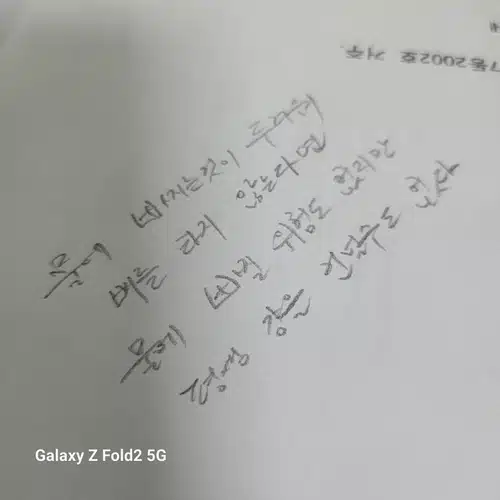 물에 빠지는것이 두려워
배를 타지 않는다면
물에 빠질 위험도 없지만
평생 강을 건널수도 없다
7동2002호 거주.
Galaxy Z Fold2 5G